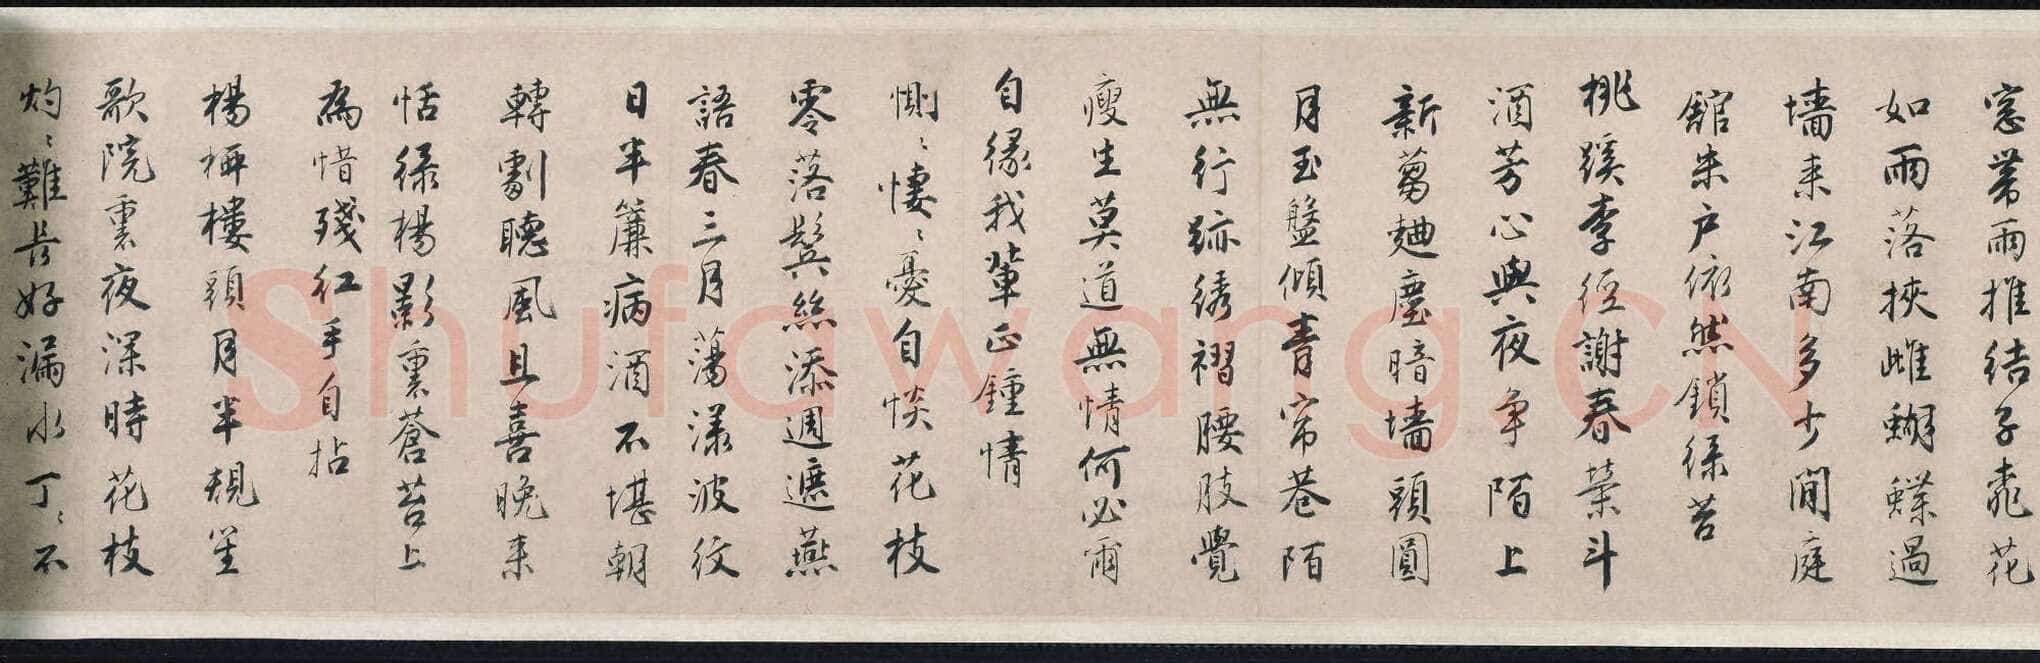 窓帶雨推結子靠花
如雨落挾雌蝴蝶過
墻来江南多少閒庭
舘朱户依然鎖綠苔
桃蹊李徑謝春榮斗
酒芳心與夜争陌上
新蒭麯塵暗墻頭圓
月玉盤傾青帘巷陌
無行跡綉褶腰肢覺
瘦生莫道無情何必爾
自緣我輩正鍾情
惻〻悽〻憂自惔花枝
零落鬂絲添週遮燕
語春三月蕩漾波紋
日半簾病酒不堪朝
轉劇聽風且喜晚来
恬綠楊影裏蒼苔上
為惜殘紅手自拈
楊栁樓頭月半規笙
歌院裏夜深時花枝
灼〻難長好漏水丁〻不
Shufawang.CN